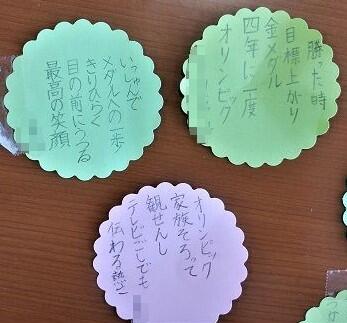 勝った時
目標上がり
金メダル
四年に一度
オリンピック
いっしゅんで
メダルへの一歩
きりひらく
目の前にうつる
最高の笑顔
オリンピック
家族そろって
観せんし
テレビごしでも
伝わる熱さ